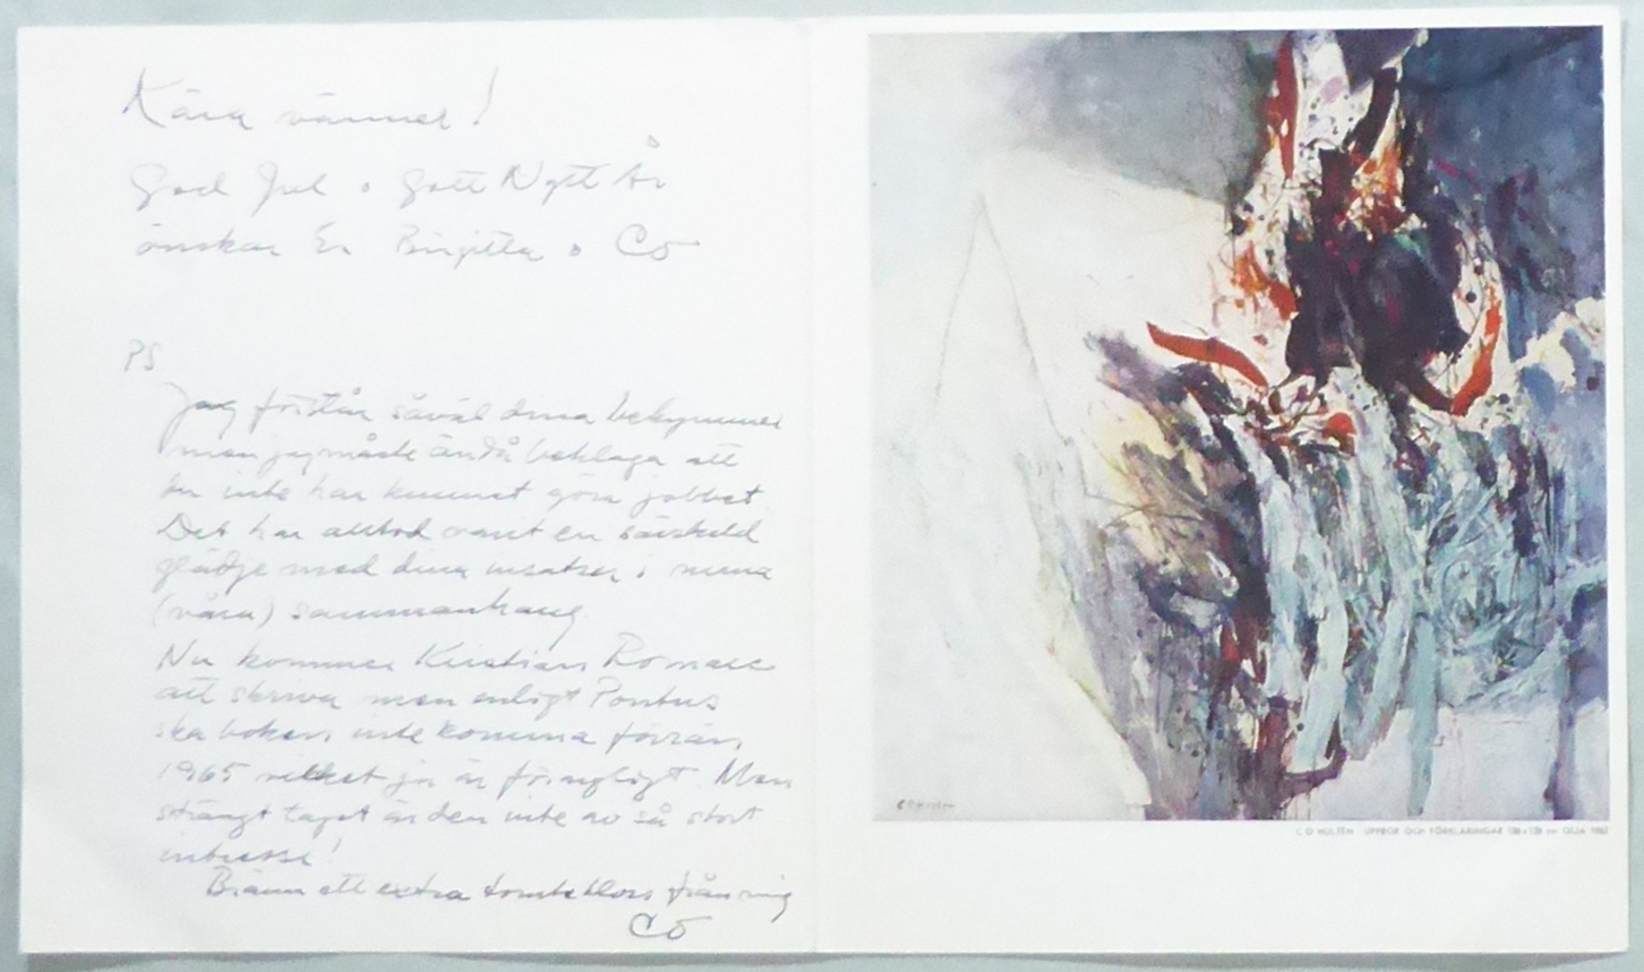 Kära vänner!
God Jul o Gott Nytt År
önskar Er Birgitta o CO
PS
Jag förstår såväl dina bekymmer
men jag måste ändå beklaga att
du inte har kunnat göra jobbet.
Det har alltid varit en särskild
glädje med dina insatser i mina
(våra) sammanhang.
Nu kommer Kristian Romare
att skriva men enligt Pontus
ska boken inte komma förrän
1965 vilket ju är
Men
strängt taget är den inte av så stort
intresse!
Bränn ett extra tomtebloss från mig
CO
C O HULTÉN UPPROR OCH FÖRKLARINGAR OLJA